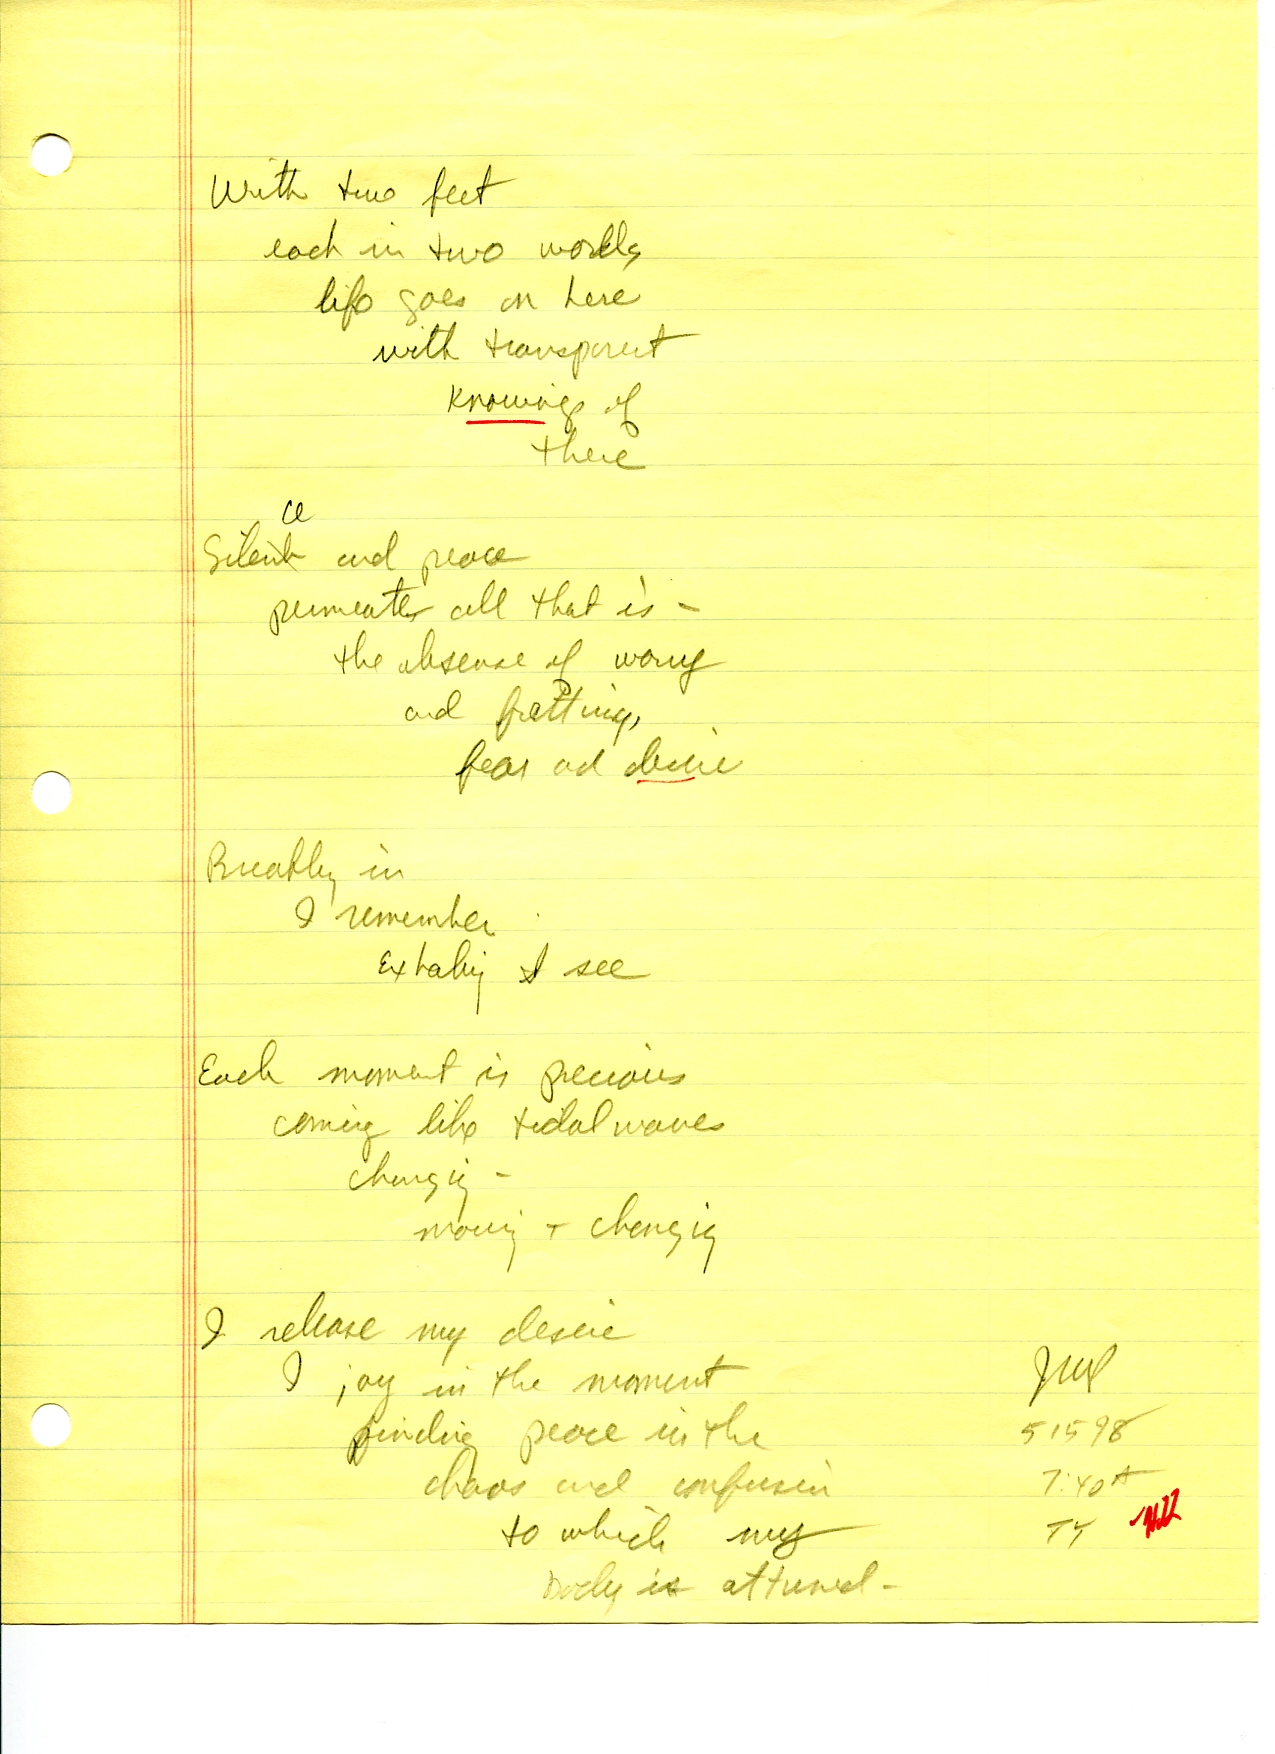 With two feet
each in two worlds,
life goes on here
with transparent
knowings of
there
ce
Silent and peace
permeates all that is -
the absense of worry
and fretting,
fear and desire
Breathing in
I remember
Exhaling I see
Each moment is precious
coming like tidal waves
changing -
moving + changing
I release my desire
I joy in the moment
finding peace in the
chaos and confusion
to which my
body is attuned -
5 15 98
7:40 A
TY